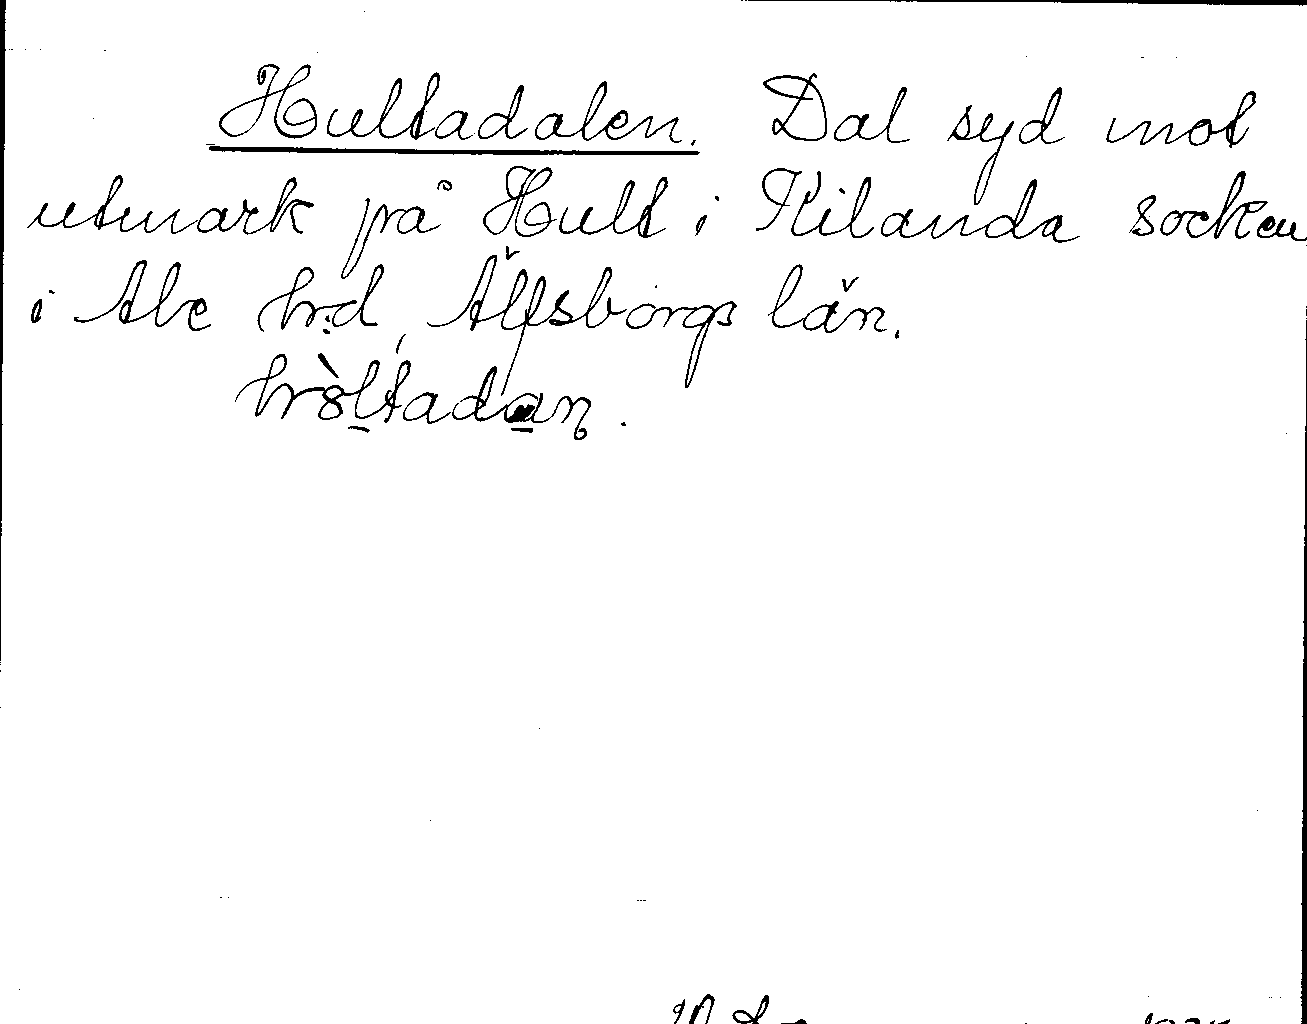 Hultadalen. Dal syd mot
utmark på Hult i Kilanda socken
i Ale hrd, Älfsborgs län.